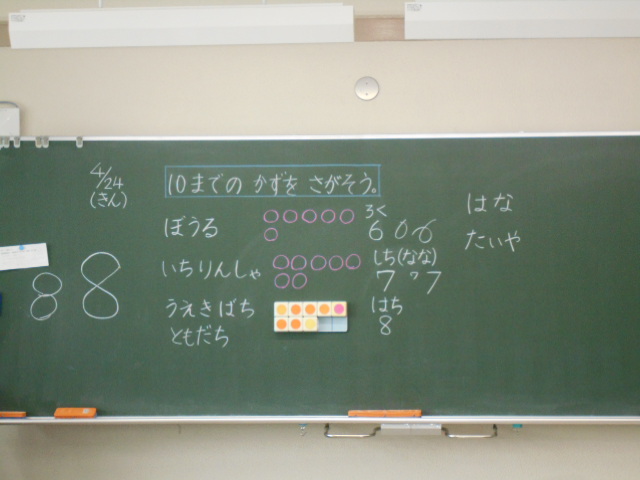 4/24
(きん)
10までの かずを さがそう。
ぼうる
ろく
6 6 6
いちりんしゃ
しち(なな)
7 7 7
うえきばち
はち
8
ともだち
はな
たいや
8 8